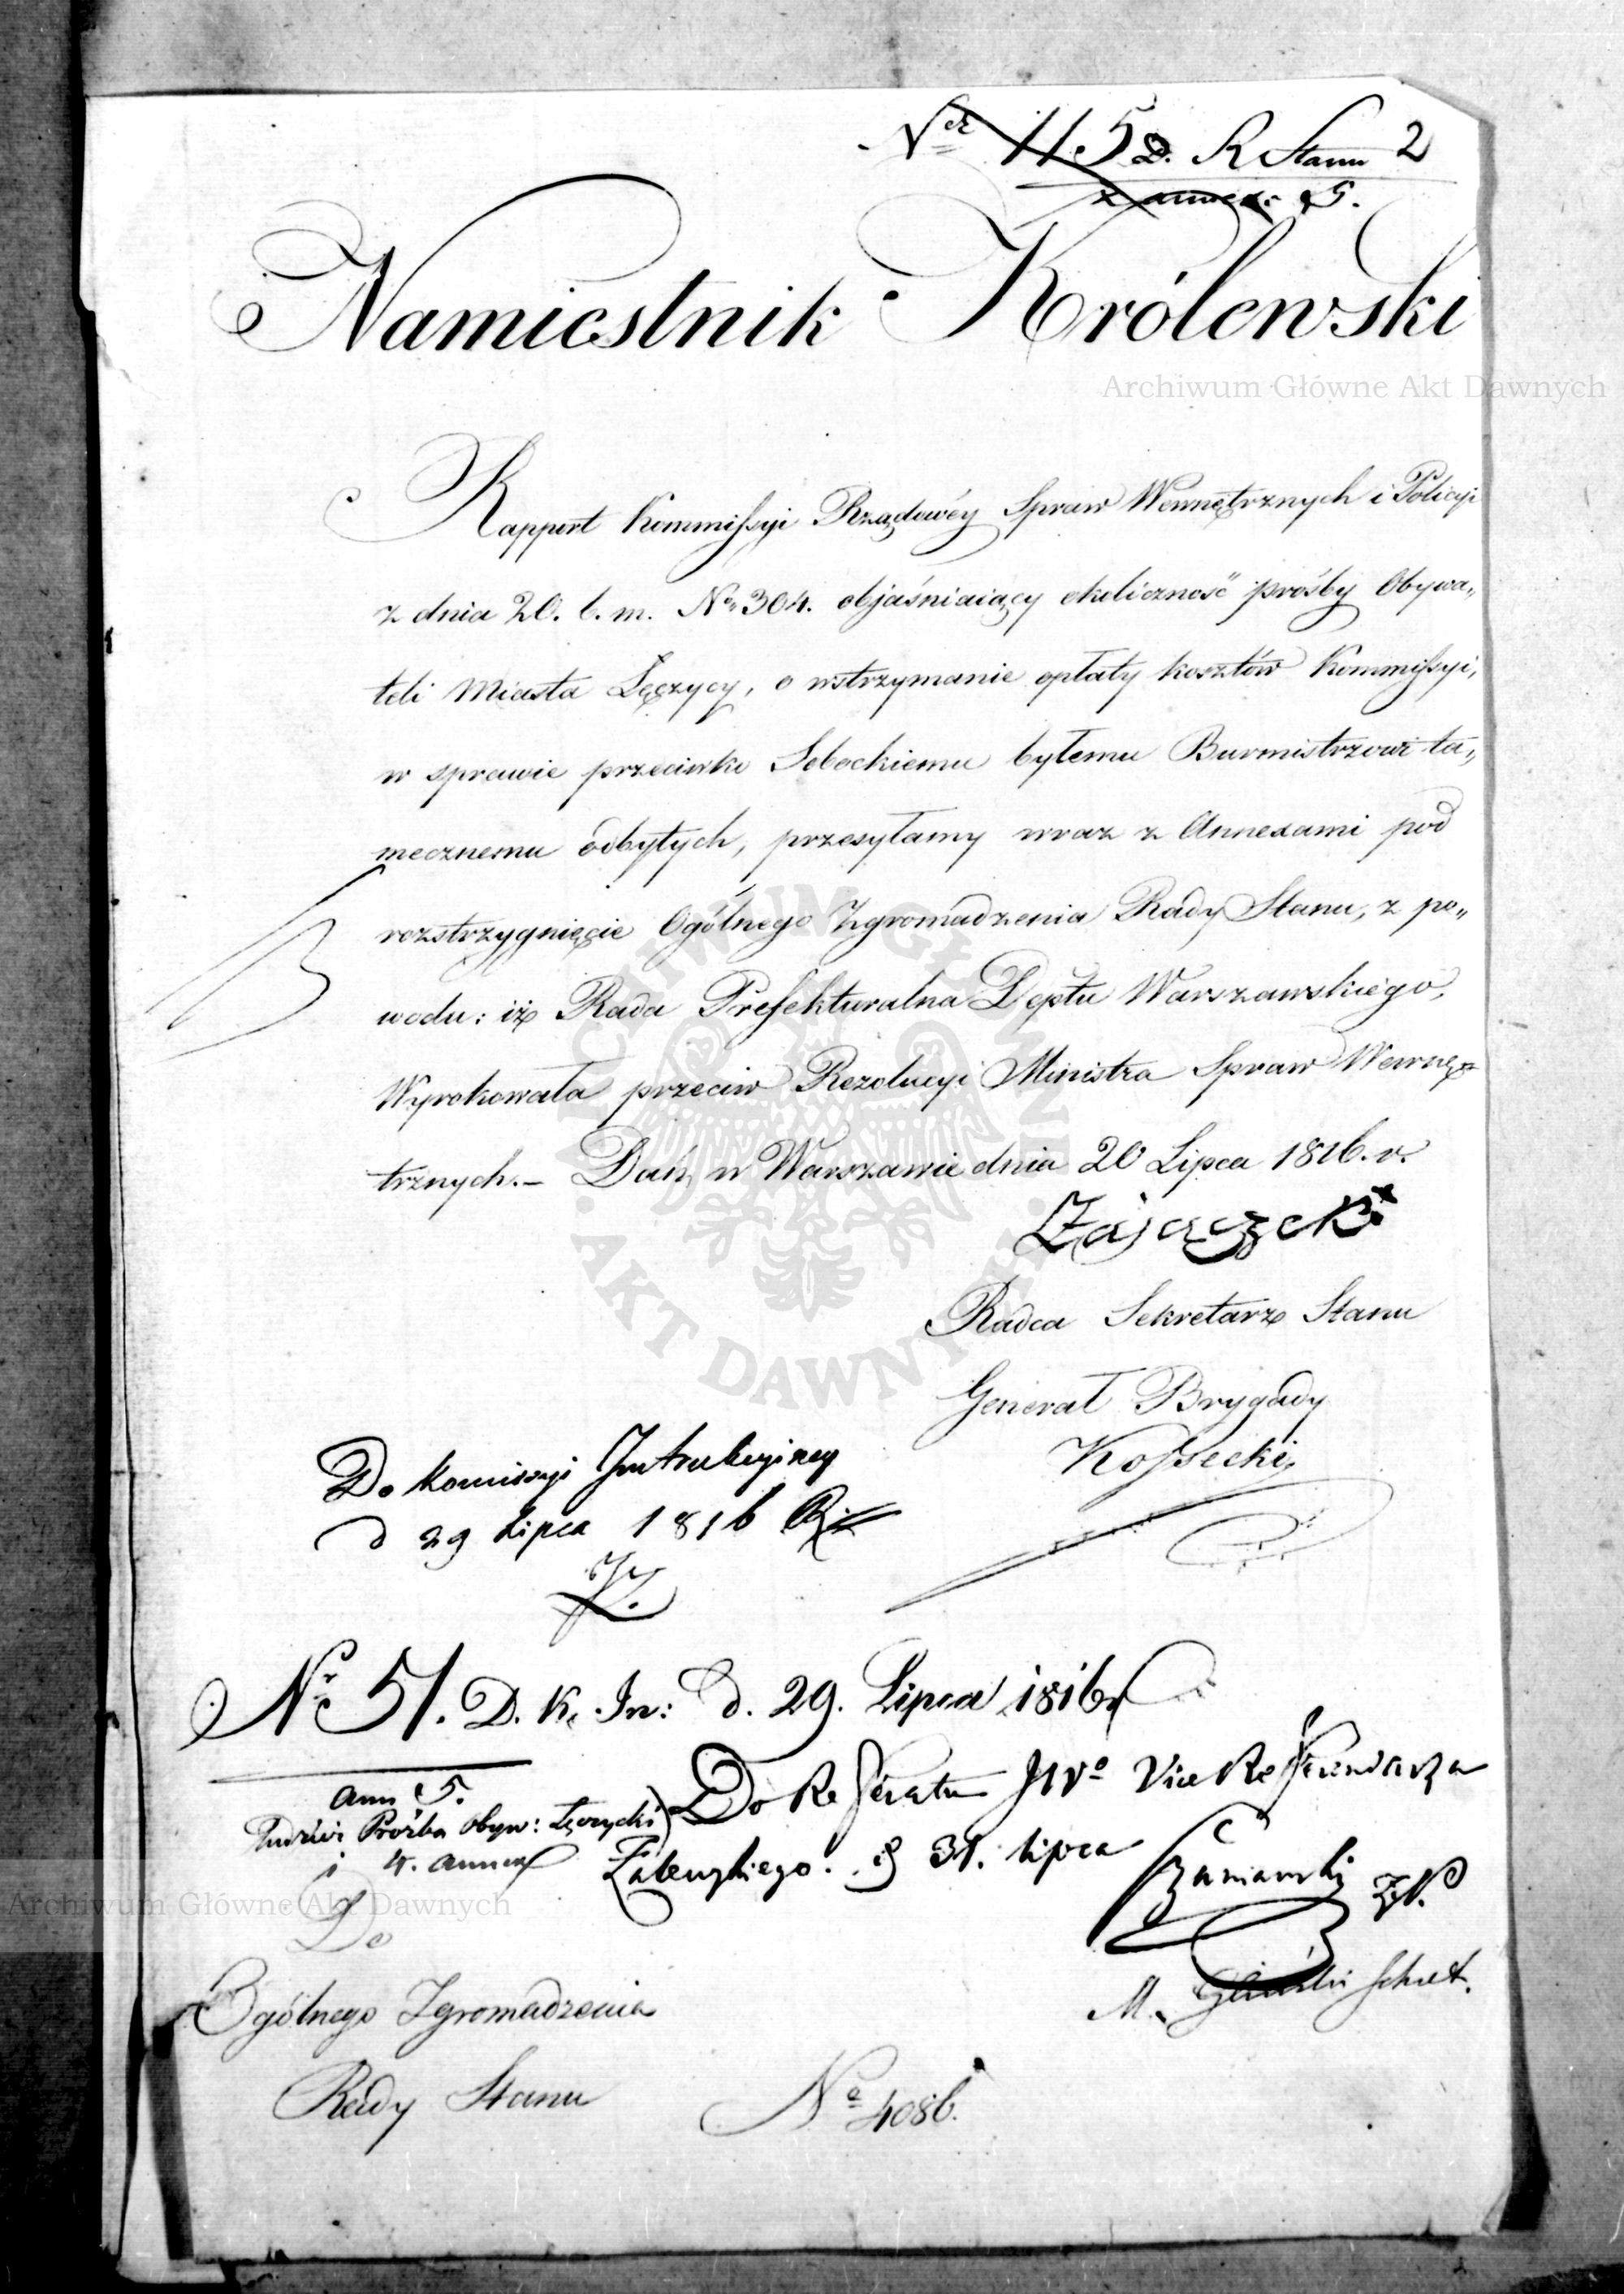 Nr 115 D. R Stanu 2
z annex: 5.
Namiestnik Królewski
Archiwum Główne Akt Dawnych
Rapport Kommissyi Rządowéy Spraw Wewnętrznych i Policyi
z dnia 20. b. m. Nr 304. objaśniaiący okoliczność prośby Obywa„
teli Miasta Łęczycy, o wstrzymanie opłaty kosztów Kommissyi,
w sprawie przeciwko Sobockiemu byłemu Burmistrzowi ta„
mecznemu odbytych, przesyłamy wraz z Annexami pod
rozstrzygnięcie Ogólnego Zgromadzenia Rady Stanu, z po„
wodu: iż Rada Prefekturalna Deptu Warszawskiego,
Wyrokowała przeciw Rezolucyi Ministra Spraw Wewnę„
trznych.– Dań w Warszawie dnia 20 Lipca 1816. r.
Zajączek
Radca Sekretarz Stanu
Generał Brygady
Kossecki
ARCHIWUM GŁÓWNE AKT DAWNYCH
Do Komissyi Instrukcyiney
d 29 Lipca 1816 R
Nr 51. D. K. In: d. 29. Lipca 1816
ann 5.
Prośba Obyw: Łęczycki
i 4. annex
Do Referatu JWo Vice Referendarza
Zaleskiego. d 31. Lipca
Archiwum Główne Akt Dawnych
Do
Ogólnego Zgromadzenia
M. Sekret.
Rady Stanu
No 4086.